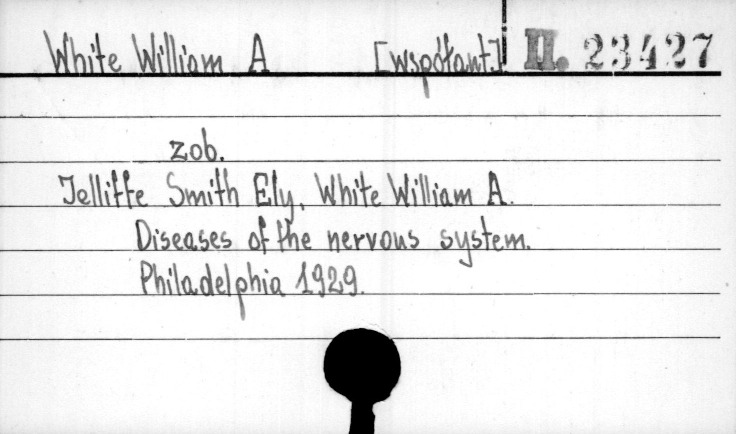 White William A [współaut] II. 23427
zob.
Jelliffe Smith Ely, White William A.
Diseases of the nervous system.
Philadelphia 1929.